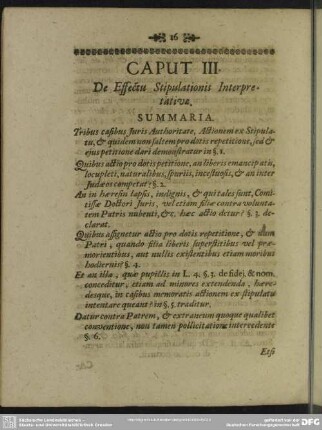 16
CAPUT III.
De Effectu Stipulationis Interpre-
tativæ,
SUMMARIA.
Tribus casibus Juris Authoritate, Actionem ex Stipula-
tu, & quidem non saltem pro dotis repetitione, sed &
ejus petitione dari demonstratur in §. 1.
Quibus actio pro dotis petitione, an liberis emancipatis,
locupleti, naturalibus, spuriis, incestuosis, & an inter
Judæos competat? §. 2.
An in hæresin lapsis, indignis, & qui tales sunt, Comi-
tissæ Doctori Juris, vel etiam filiæ contra volunta-
tem Patris nubenti, &c. hæc actio detur? §. 3. de-
clarat.
Quibus assignetur actio pro dotis repetitione, & an
Patri, quando filia liberis superstitibus vel præ-
morientibus, aut nullis existentibus etiam moribus
hodiernis? §. 4.
Et an illa, quæ pupillis in L. 4. §. 3. de fidej. & nom.
conceditur, etiam ad minores extendenda, hære-
desque, in casibus memoratis actionem ex stipulatu
intentare queant? in §. 5. traditur.
Datur contra Patrem, & extraneum quoque qualibet
conventione, non tamen pollicitatione intercedente
§. 6.
Etsi